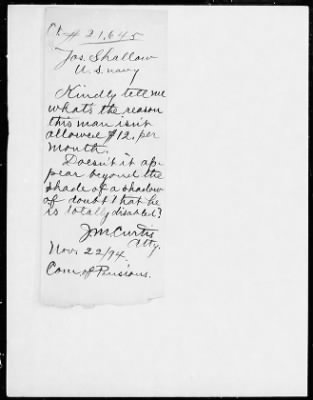 Ct # 21,645
Jos. Shallow
U.S. Navy
Kindly tell me
whats the reason
this man isn't
allowed $12. per
month.
Doesn't it ap-
pear beyond the
shade of a shadow
of doubt that he
is totally disabled?
J M Curtis
Atty.
Nov. 22/94.
Com of Pensions.